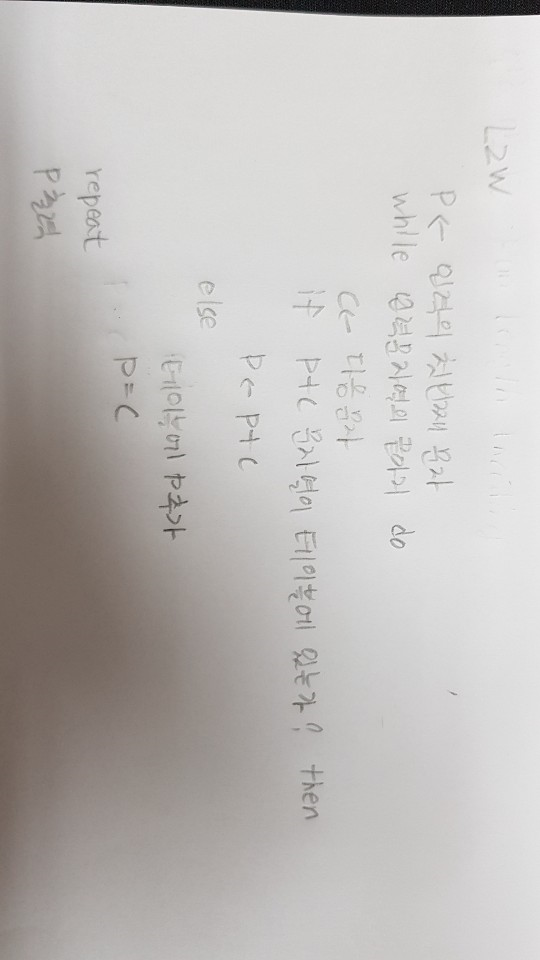 LZW
P ← 입력의 첫번째 문자
while 입력문자열의 끝까지 do
C← 다음 문자
if P+C 문자열이 테이블에 있는가? then
P ← P+C
else
테이블에 P추가
P=C
repeat
P출력